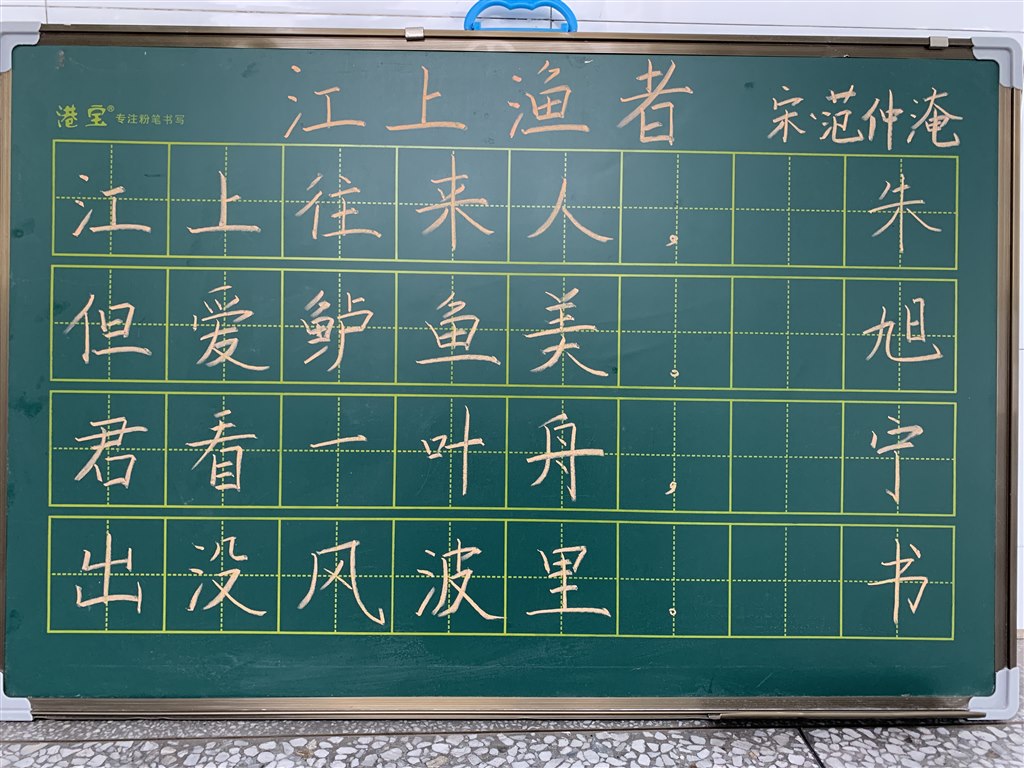 港宝® 专注粉笔书写
江上渔者 宋·范仲淹
江上往来人，
但爱鲈鱼美。
君看一叶舟，
出没风波里。
朱旭宁书